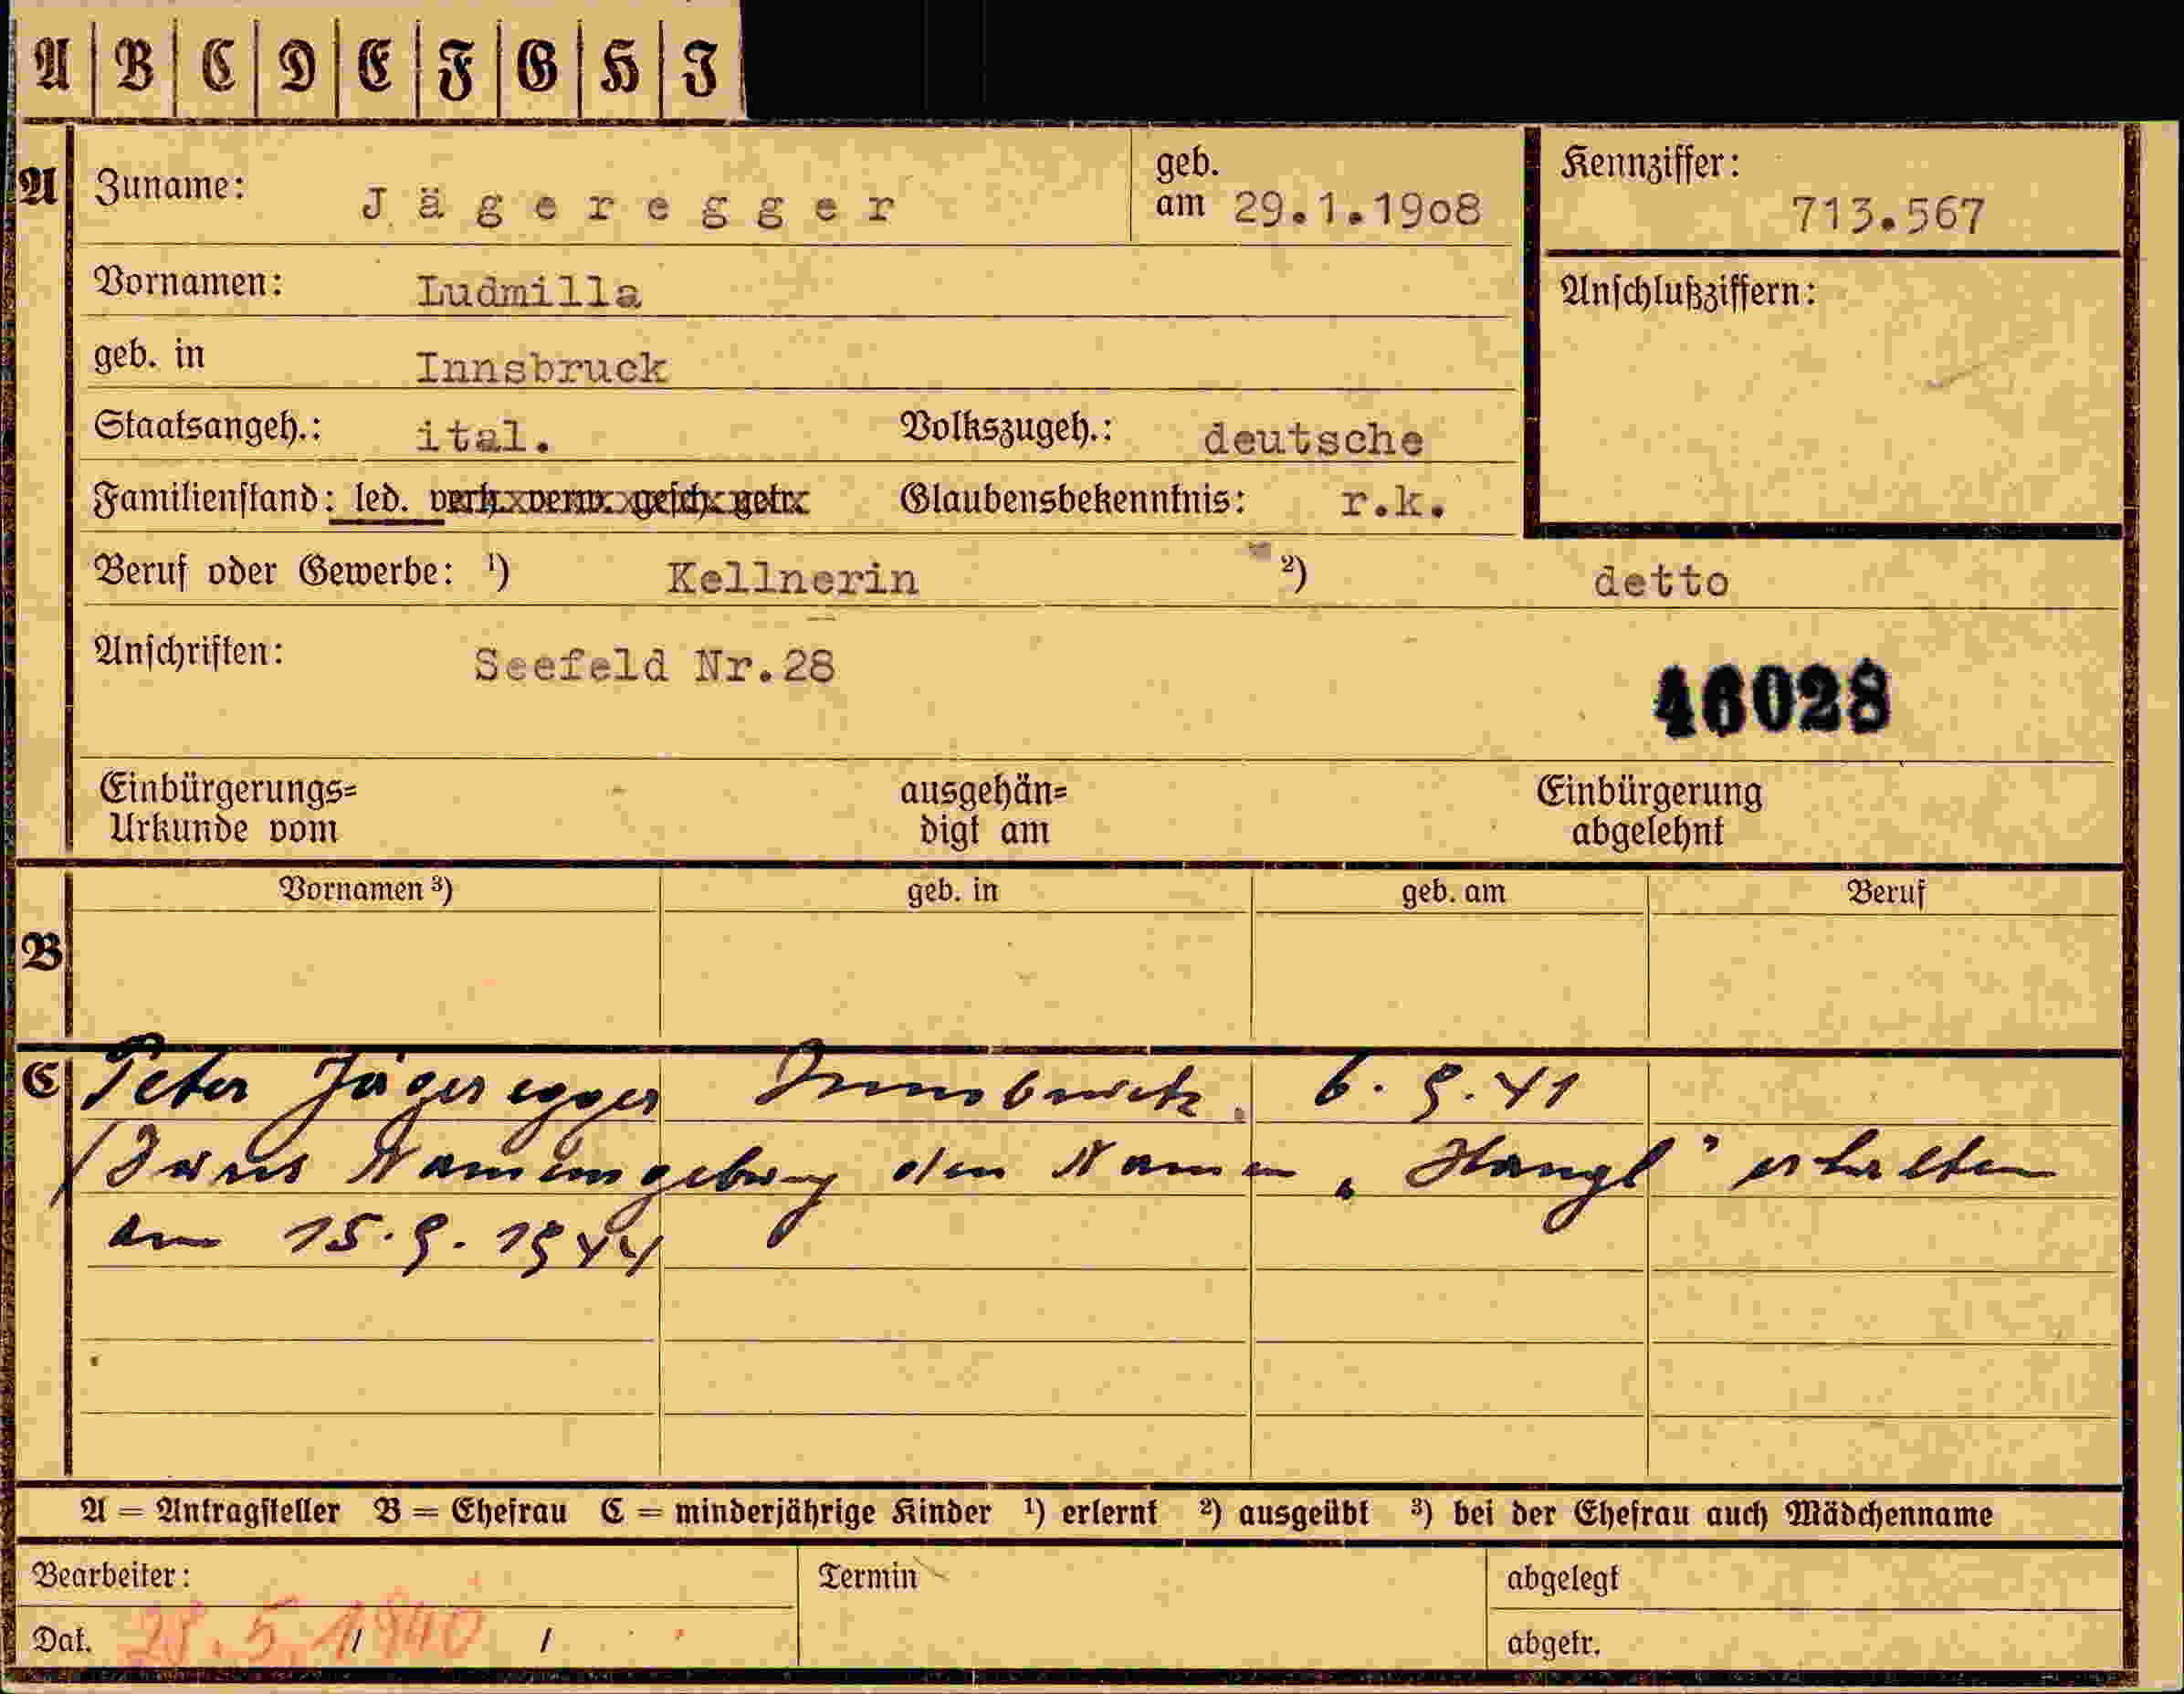 A B C D E F G H J
A Zuname: Jägeregger geb. am 29.1.1908 Kennziffer: 713.567
Vornamen: Ludmilla Anschlußziffern:
geb. in Innsbruck
Staatsangeh.: ital. Volkszugeh.: deutsche
Familienstand: led. verh. verw. gesch. getr. Glaubensbekenntnis: r.k.
Beruf oder Gewerbe: ¹) Kellnerin ²) detto
Anschriften: Seefeld Nr.28
46028
Einbürgerungs= ausgehän= Einbürgerung
Urkunde vom digt am abgelehnt
Vornamen ³) geb. in geb. am Beruf
B
C Peter Jägeregger Innsbruck. 6. 9. 41
Namensgebung den Namen „Hangl" erhalten
am 15. 9. 1944
A = Antragsteller B = Ehefrau C = minderjährige Kinder ¹) erlernt ²) ausgeübt ³) bei der Ehefrau auch Mädchenname
Bearbeiter: Termin abgelegt
Dat. 28. 5. 1940 abgetr.